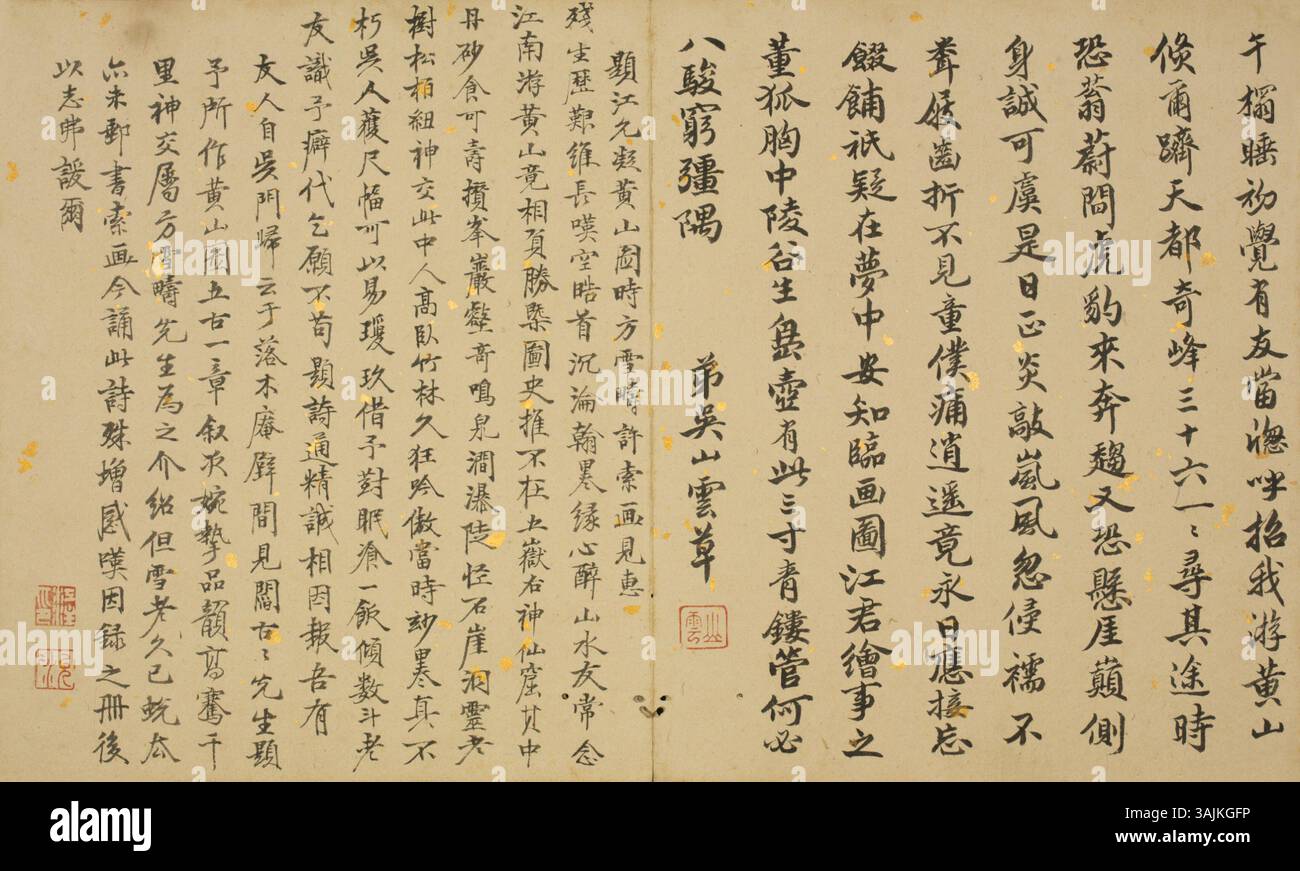 午榻睡初覺有友當窗呼招我游黄山
倏爾躋天都奇峰三十六一〻尋其途時
恐蓊蔚間虎豹來奔趨又恐懸厓顛側
身誠可虞是日正炎敲嵐風忽侵襦不
覺屐齒折不見童僕痡逍遥竟永日應接忘
餟餔祇疑在夢中安知臨画圖江君繪事之
董狐胸中陵谷生島壺有此三寸青鏤管何必
八駿窮彊隅
弟吳山雲草
山雲
題江允凝黄山啚時方雪疇許索画見惠
殘生歷艱維長嘆空皓首沉淪翰墨緣心醉山水友常念
江南游黄山竟相負勝槩圖史推不在五嶽右神仙窟其中
丹砂食可壽攢峯巖壑奇鳴泉澗瀑陡怪石崖洞靈老
樹松栢紐神交此中人高臥竹林久狂吟傲當時妙墨真不
朽吳人獲尺幅可以易瓊玖借予對眠飡一飯傾數斗老
友識予癖代乞願不苟題詩通精誠相因報吾有
友人自吳門歸云于落木庵壁間見閻古〻先生題
予所作黄山圖五古一章叙次婉摯品韻高騫千
里神交屬方雪疇先生為之介紹但雪老久已蛻太
亦未郵書索画今誦此詩殊增感嘆因録之冊後
以志弗諼爾